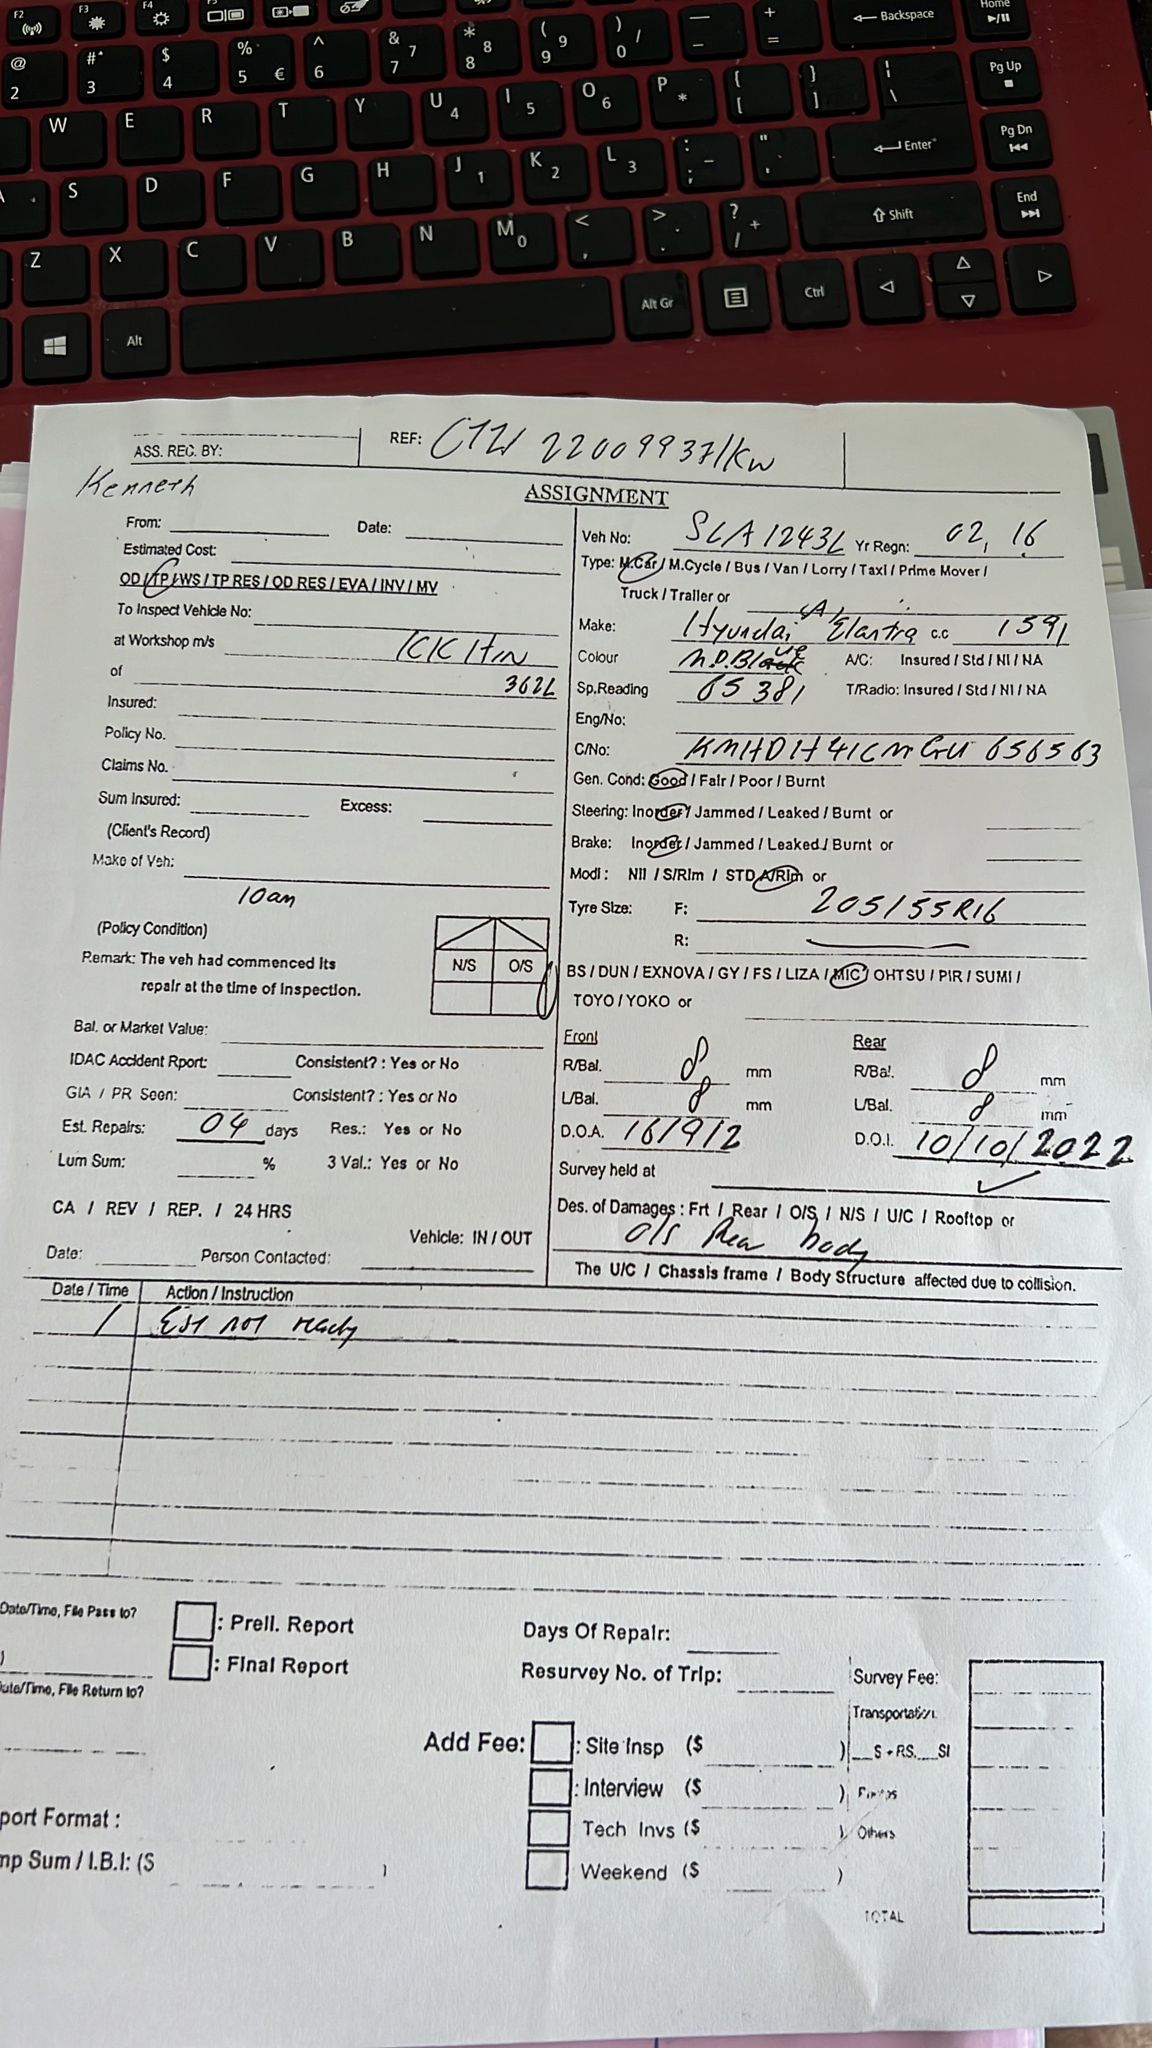 F2 F3 F4
Home
@ 2 # 3 $ 4 % 5 € ^ 6 & 7 7 * 8 8 ( 9 9 ) 0 / — _ + = ← Backspace
W E R T Y U 4 I 5 O 6 P * { [ } ] ¦ \ Pg Up
A S D F G H J 1 K 2 L 3 : ; - " ' Enter Pg Dn
Z X C V B N M 0 < , > . ? / + Shift End
Alt Alt Gr Ctrl
ASS. REC. BY: REF: CTW 22009937/KW
Kenneth
ASSIGNMENT
From: Date:
Estimated Cost:
OD / TP / WS / TP RES / OD RES / EVA / INV / MV
To Inspect Vehicle No:
at Workshop m/s KK Hin
of 362L
Insured:
Policy No.
Claims No.
Sum Insured: Excess:
(Client's Record)
Make of Veh:
10am
(Policy Condition)
Remark: The veh had commenced its
repair at the time of Inspection.
N/S O/S
Bal. or Market Value:
IDAC Accident Rport: Consistent? : Yes or No
GIA / PR Seen: Consistent? : Yes or No
Est. Repairs: 04 days Res.: Yes or No
Lum Sum: % 3 Val.: Yes or No
CA / REV / REP. / 24 HRS
Vehicle: IN / OUT
Date: Person Contacted:
Veh No: SLA1243L Yr Regn: 02, 16
Type: M.Car / M.Cycle / Bus / Van / Lorry / Taxi / Prime Mover /
Truck / Trailer or
Make: Hyundai Elantra c.c 1591
Colour A/C: Insured / Std / NI / NA
Sp.Reading 65381 T/Radio: Insured / Std / NI / NA
Eng/No:
C/No: KMHDH41CMGU656563
Gen. Cond: Good / Fair / Poor / Burnt
Steering: Inorder / Jammed / Leaked / Burnt or
Brake: Inorder / Jammed / Leaked / Burnt or
Modi: Nil / S/Rim / STD A/Rim or
Tyre Size: F: 205/55R16
R:
BS / DUN / EXNOVA / GY / FS / LIZA / MIC / OHTSU / PIR / SUMI /
TOYO / YOKO or
Front Rear
R/Bal. 8 mm R/Bal. 8 mm
L/Bal. 8 mm L/Bal. 8 mm
D.O.A. 16/9/2 D.O.I. 10/10/2022
Survey held at
Des. of Damages : Frt / Rear / O/S / N/S / U/C / Rooftop or
O/S Rear body
The U/C / Chassis frame / Body Structure affected due to collision.
Date / Time Action / Instruction
/ Est not ready
Date/Time, File Pass to?
: Prell. Report
: Final Report
File Return to?
Days Of Repair:
Resurvey No. of Trip:
Survey Fee:
Add Fee: : Site Insp ($ )
: Interview ($ )
Tech Invs ($ )
Weekend ($ )
Others
TOTAL
port Format :
mp Sum / I.B.I: ($ )